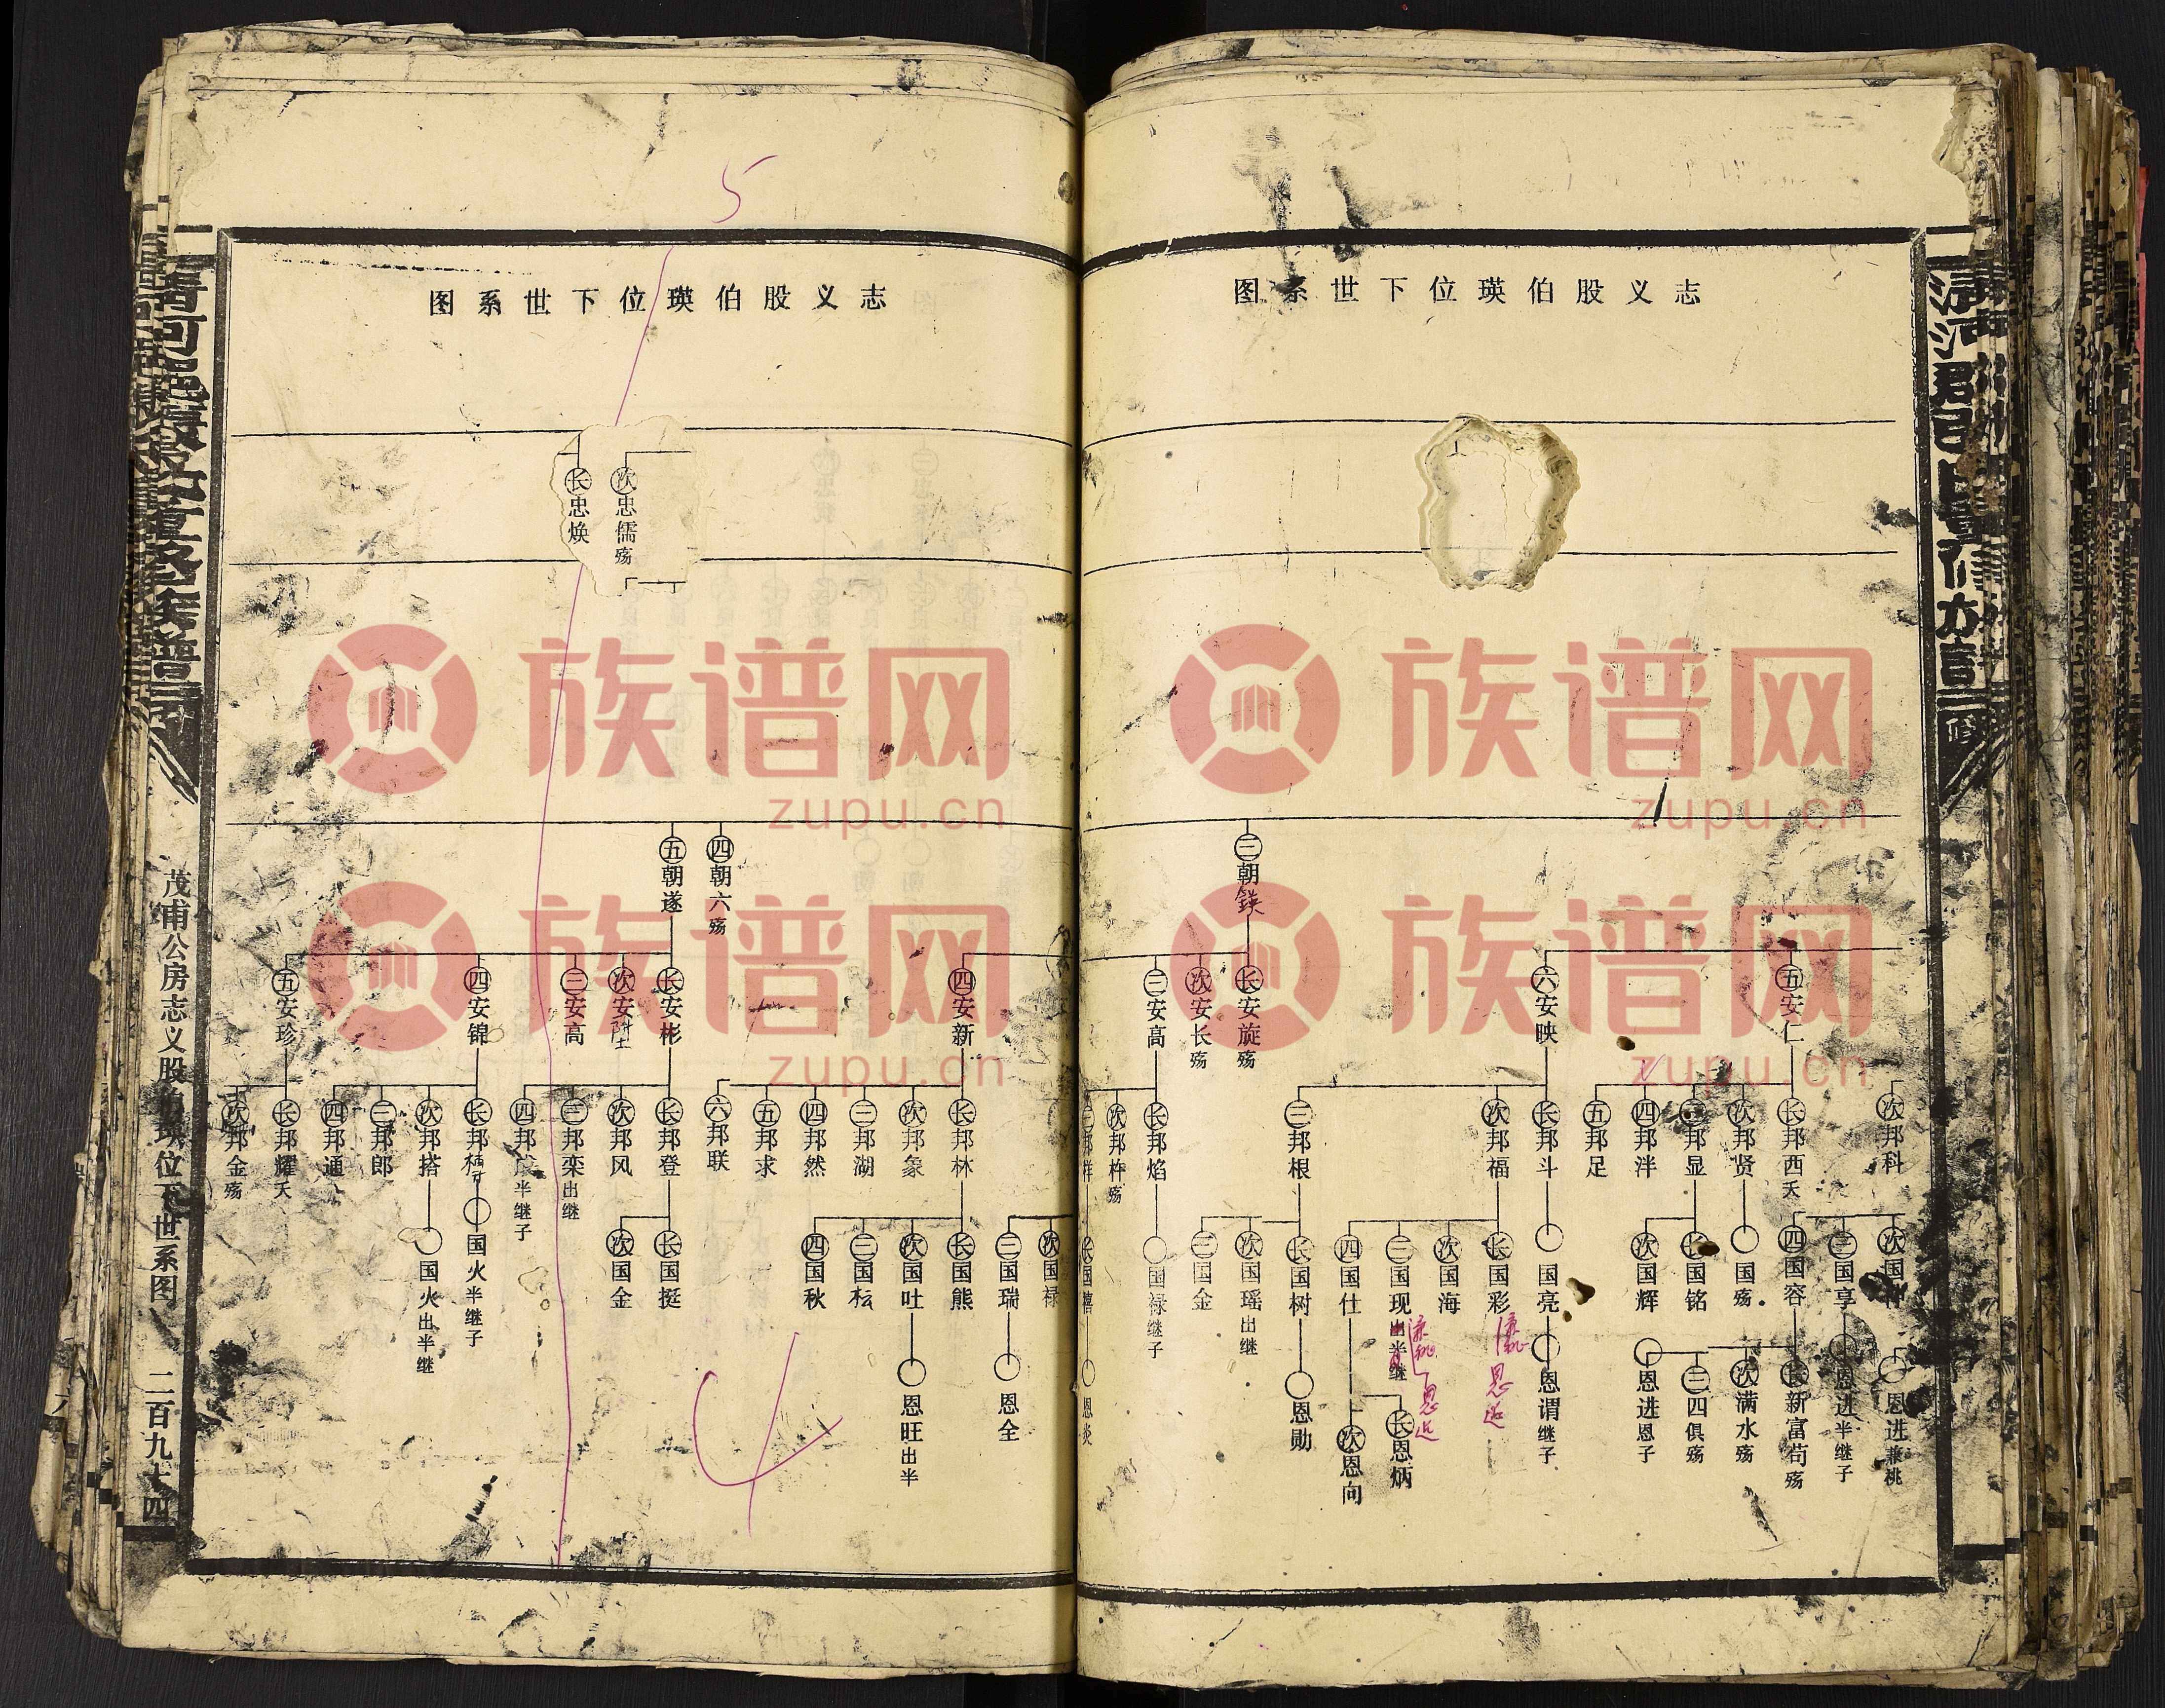 志义股伯瑛位下世系图
三朝鍈
五安仁
六安映
长安旋殇
次安长殇
三安高
次邦科
长邦西夭
次邦贤
三邦显
四邦泮
五邦足
长邦斗
次邦福
三邦根
长邦焰
次邦杵殇
次国
三国享
四国容
国殇
长国铭
次国辉
国亮
长国彩
次国海
三国现出半继
四国仕
长国树
次国瑶出继
三国金
国禄继子
恩进兼祧
恩进半继子
长新富苟殇
次满水殇
三四俱殇
恩进恩子
恩谓继子
恩
恩
长恩炳
次恩向
恩勋
恩炎
志义股伯瑛位下世系图
次忠儒殇
长忠焕
四朝六殇
五朝遂
四安新
长安彬
次安陞
三安高
四安锦
五安珍
长邦林
次邦象
三邦湖
四邦然
五邦求
六邦联
长邦登
次邦风
三邦栾出继
四邦半继子
长邦
次邦搭
三邦郎
四邦通
长邦耀夭
次邦金殇
次国禄
三国瑞
长国熊
次国吐
三国枟
四国秋
长国挺
次国金
国火半继子
国火出半继
恩全
恩旺出半
茂甫公房志义股伯瑛位下世系图
二百九十四
5
族谱网
zupu.cn
族谱网
zupu.cn
族谱网
zupu.cn
族谱网
zupu.cn